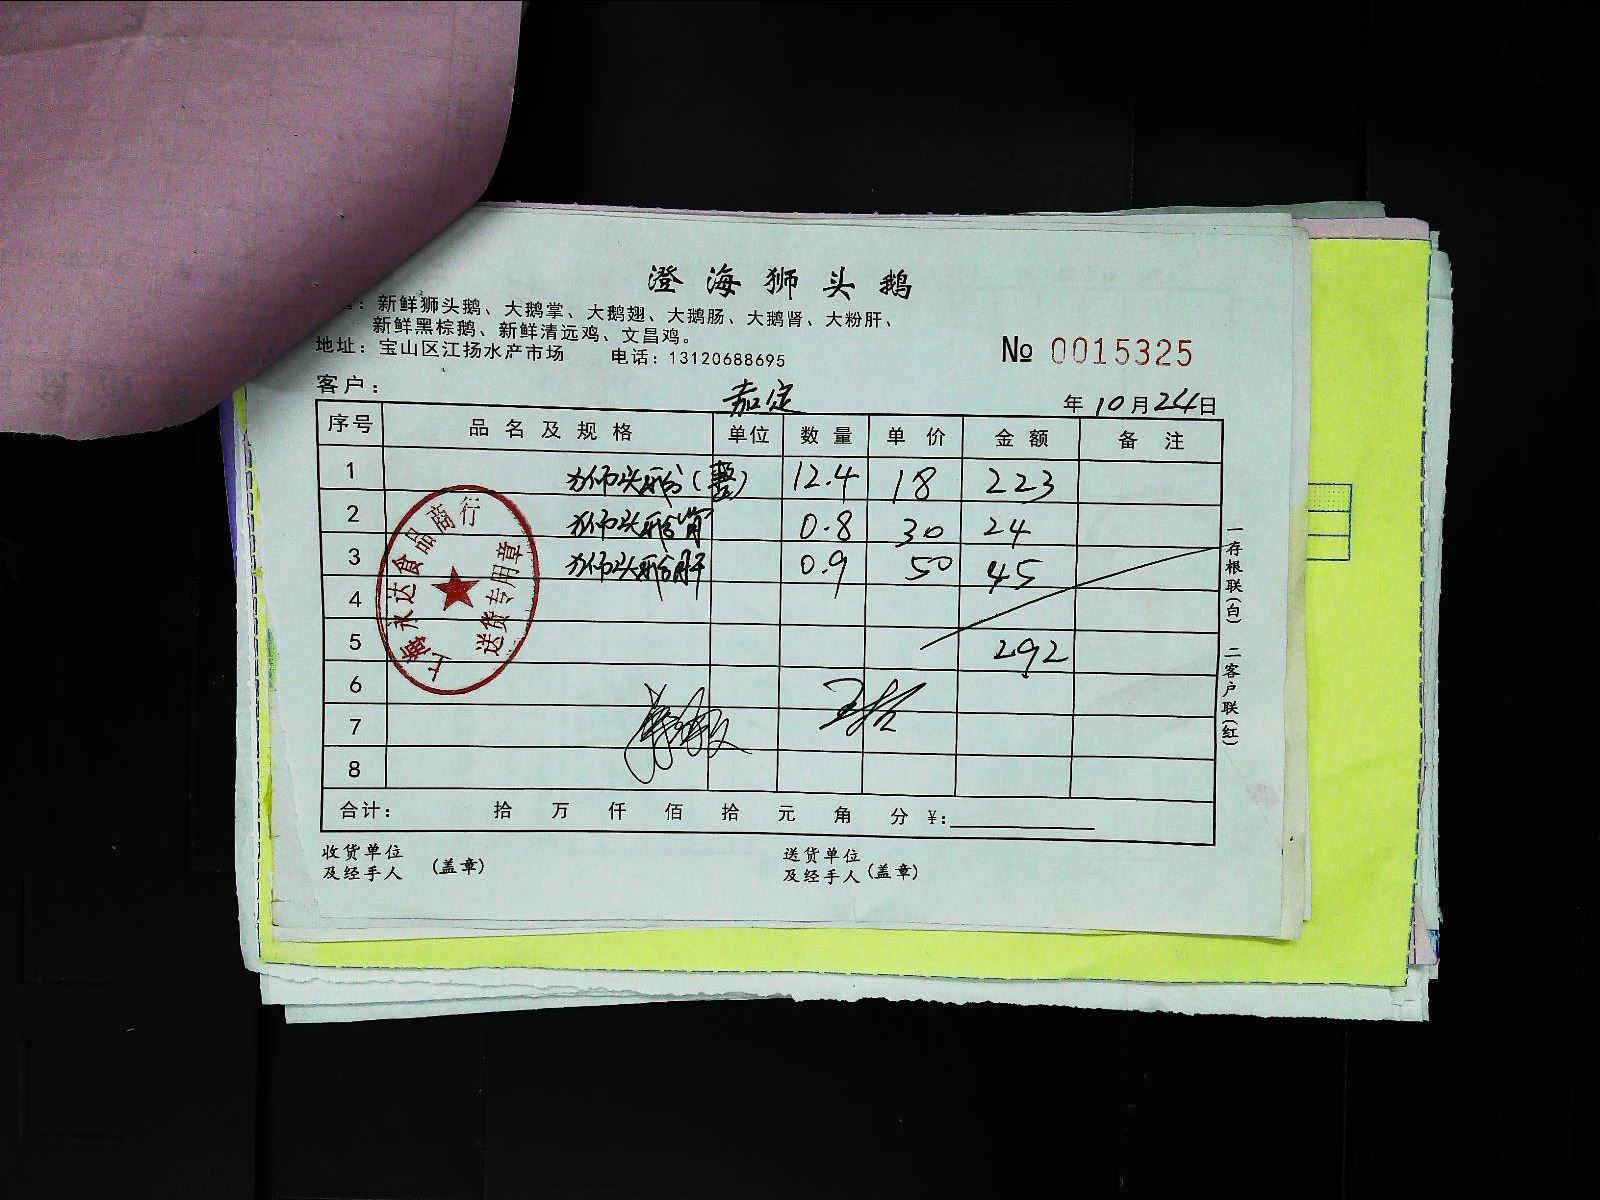 澄海狮头鹅
：新鲜狮头鹅、大鹅掌、大鹅翅、大鹅肠、大鹅肾、大粉肝、
新鲜黑棕鹅、新鲜清远鸡、文昌鸡。
地址：宝山区江扬水产市场 电话：13120688695
№ 0015325
客户： 嘉定 年 10 月 24 日
序号 品名及规格 单位 数量 单价 金额 备注
1 狮头鹅(整) 12.4 18 223
2 狮头鹅肾 0.8 30 24
3 狮头鹅肝 0.9 50 45
4
5 292
6
7
8
合计： 拾 万 仟 佰 拾 元 角 分 ¥:
收货单位
及经手人 (盖章)
送货单位
及经手人 (盖章)
一存根联(白) 二客户联(红)
上海永达食品商行
送货专用章